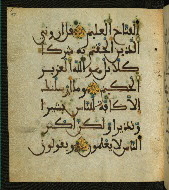 الفتاح العليم قل اروني
الذين الحقتم به شركا
كلا بل هو الله العزيز
الحكيم وما ارسلنك
الا كافة للناس بشيرا
ونذيرا ولكن اكثر
الناس لا يعلمون ويقولون